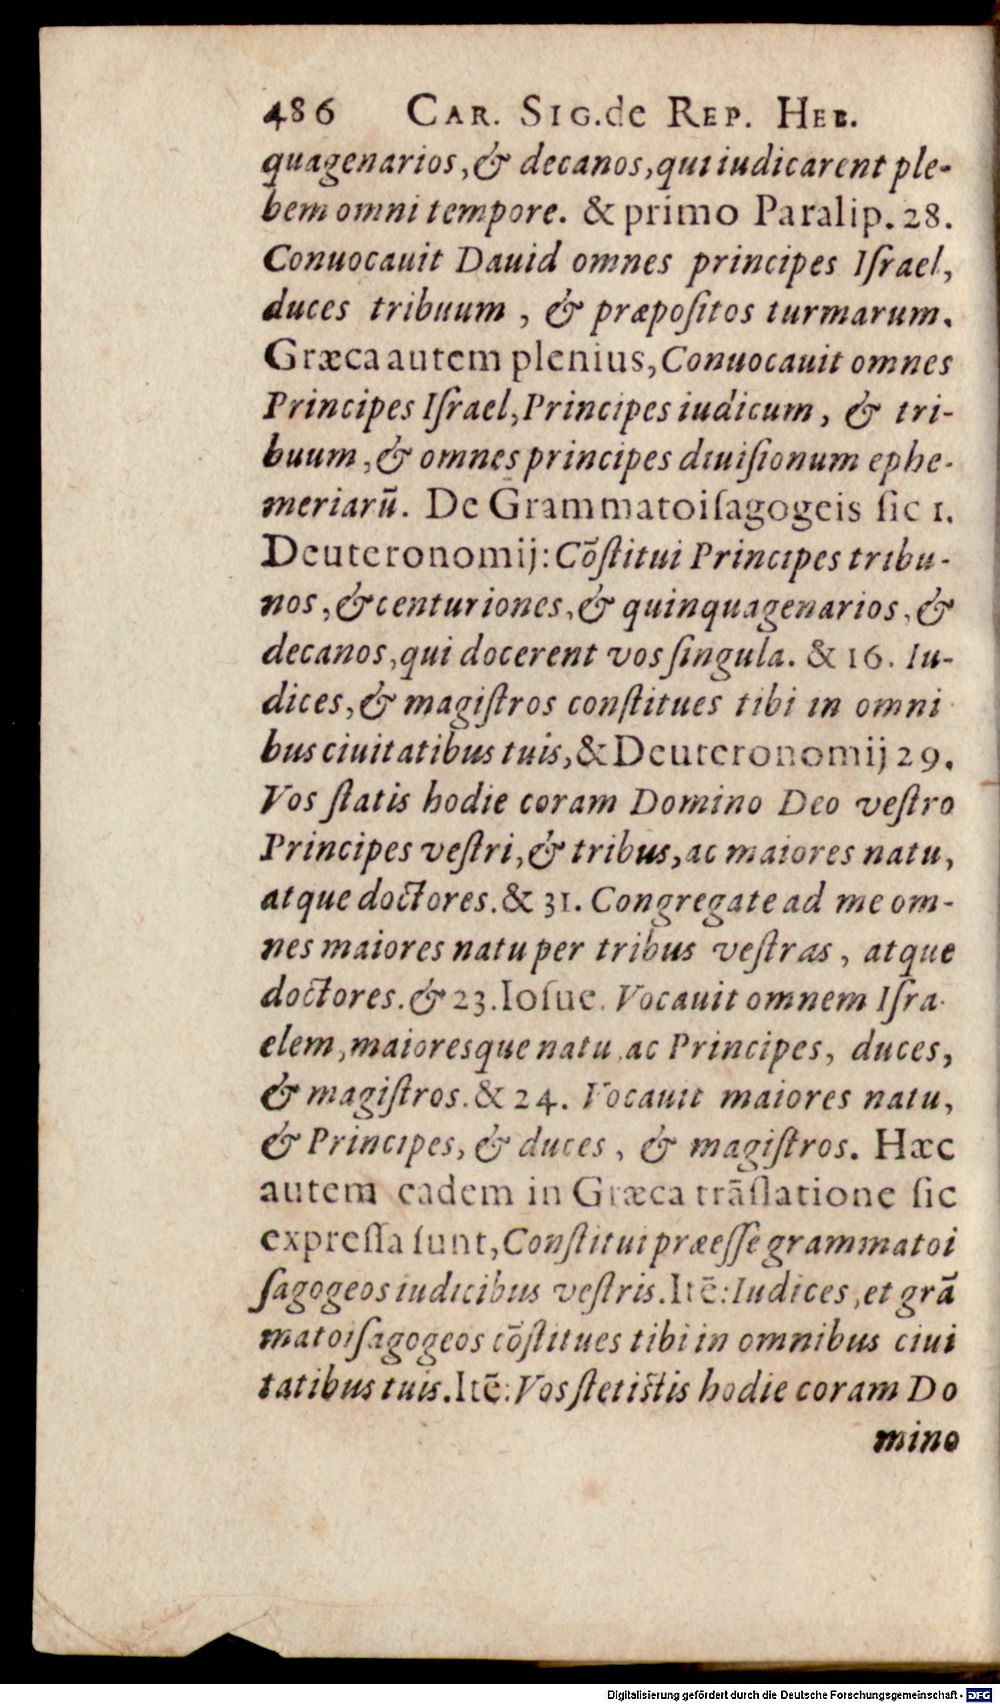 486 CAR. SIG.de REP. HEB.
quagenarios,& decanos,qui iudicarent ple-
bem omni tempore. & primo Paralip. 28.
Conuocauit Dauid omnes principes Iſrael,
duces tribuum , & præpoſitos turmarum.
Græca autem plenius, Conuocauit omnes
Principes Iſrael, Principes iudicum, & tri-
buum,& omnes principes diuiſionum ephe-
meriarũ. De Grammatoiſagogeis ſic 1.
Deuteronomij: Cõſtitui Principes tribu-
nos,& centuriones,& quinquagenarios,&
decanos,qui docerent vos ſingula. & 16. Iu-
dices,& magiſtros conſtitues tibi in omni
bus ciuitatibus tuis,& Deuteronomij 29.
Vos ſtatis hodie coram Domino Deo veſtro
Principes veſtri,& tribus,ac maiores natu,
atque doctores.& 31. Congregate ad me om-
nes maiores natu per tribus veſtras , atque
doctores.& 23.Ioſue. Vocauit omnem Iſra-
elem,maioresque natu ac Principes, duces,
& magiſtros.& 24. Vocauit maiores natu,
& Principes, & duces , & magiſtros. Hæc
autem eadem in Græca trãſlatione ſic
expreſſa ſunt, Conſtitui præeſſe grammatoi
ſagogeos iudicibus veſtris.Itẽ: Iudices,et grã
matoiſagogeos cõſtitues tibi in omnibus ciui
tatibus tuis.Itẽ: Vos ſtetiſtis hodie coram Do
mino
Digitalisierung gefördert durch die Deutsche Forschungsgemeinschaft - DFG